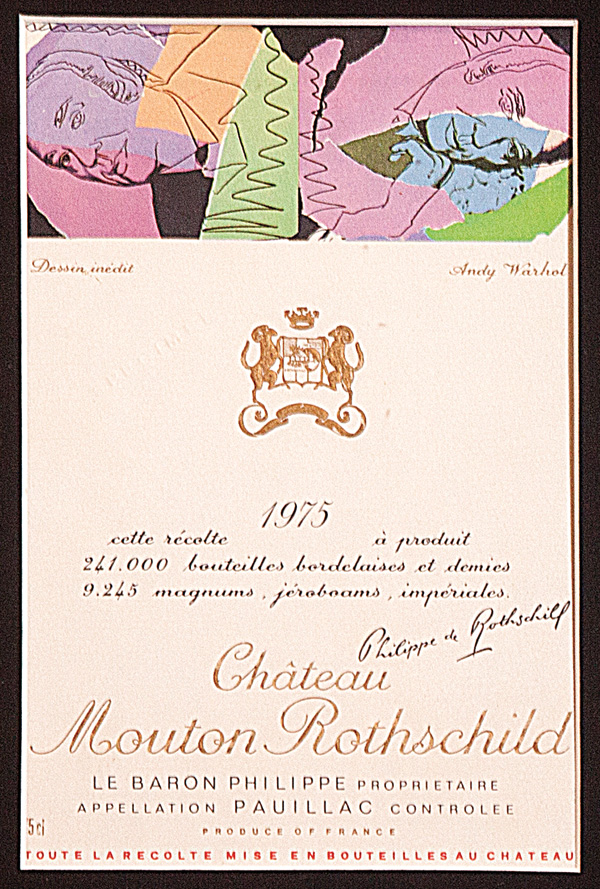 Dessin inédit Andy Warhol
1975
cette récolte à produit
241.000 bouteilles bordelaises et demies
9.245 magnums, jéroboams, impériales.
Philippe de Rothschild
Château
Mouton Rothschild
LE BARON PHILIPPE PROPRIETAIRE
APPELLATION PAUILLAC CONTROLEE
5 cl
PRODUCE OF FRANCE
TOUTE LA RECOLTE MISE EN BOUTEILLES AU CHATEAU